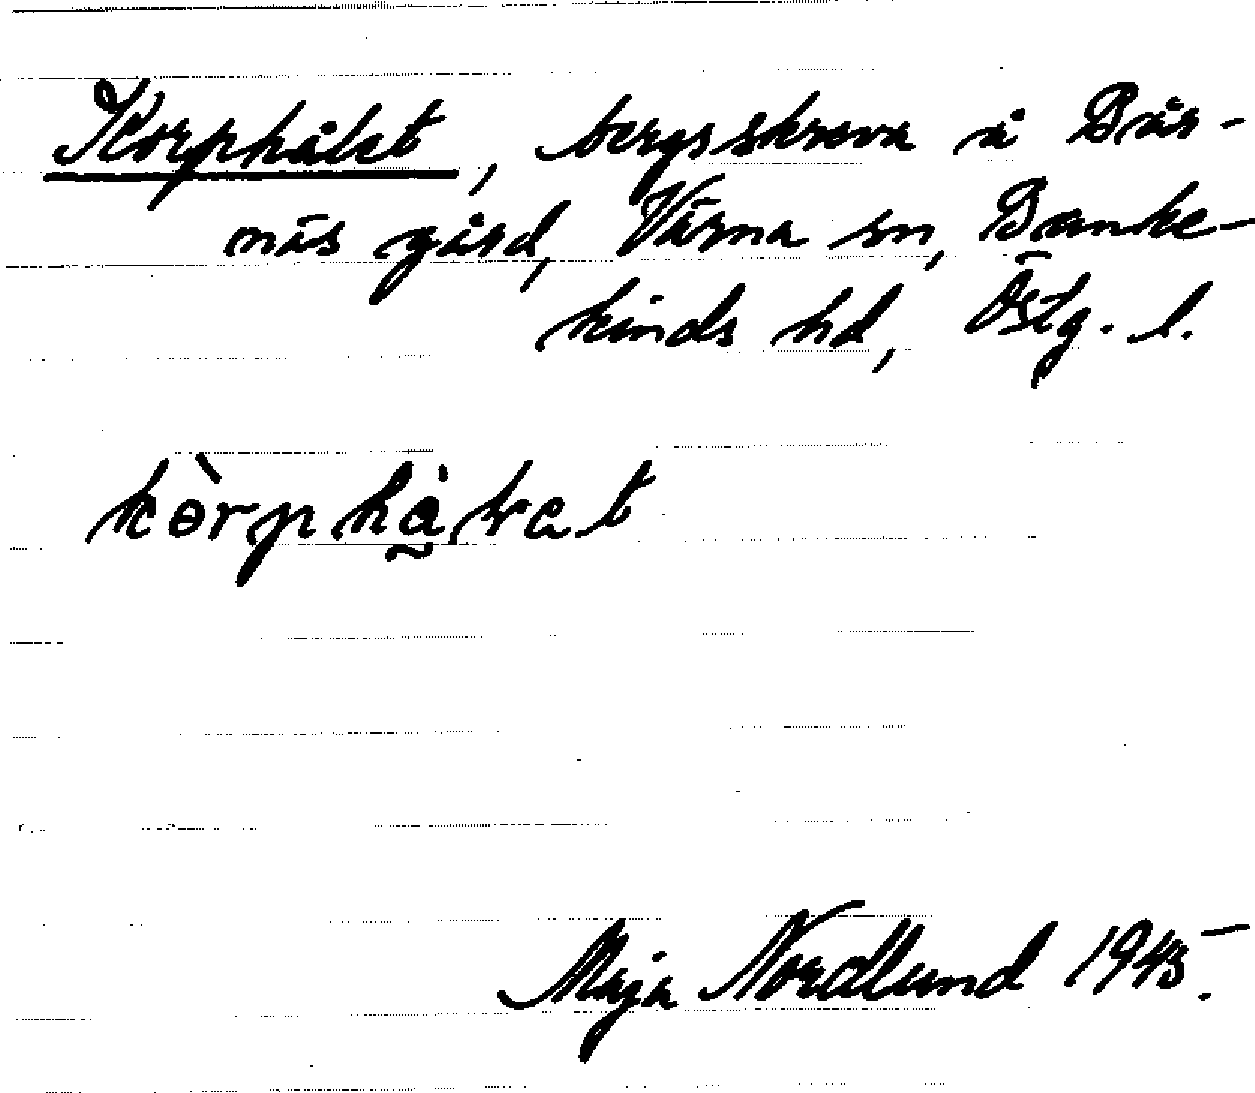 Korphålet, bergsskreva å Bås-
näs gård, Värna sn, Banke-
kinds hd, Östg. l.
Maja Nordlund 1945.